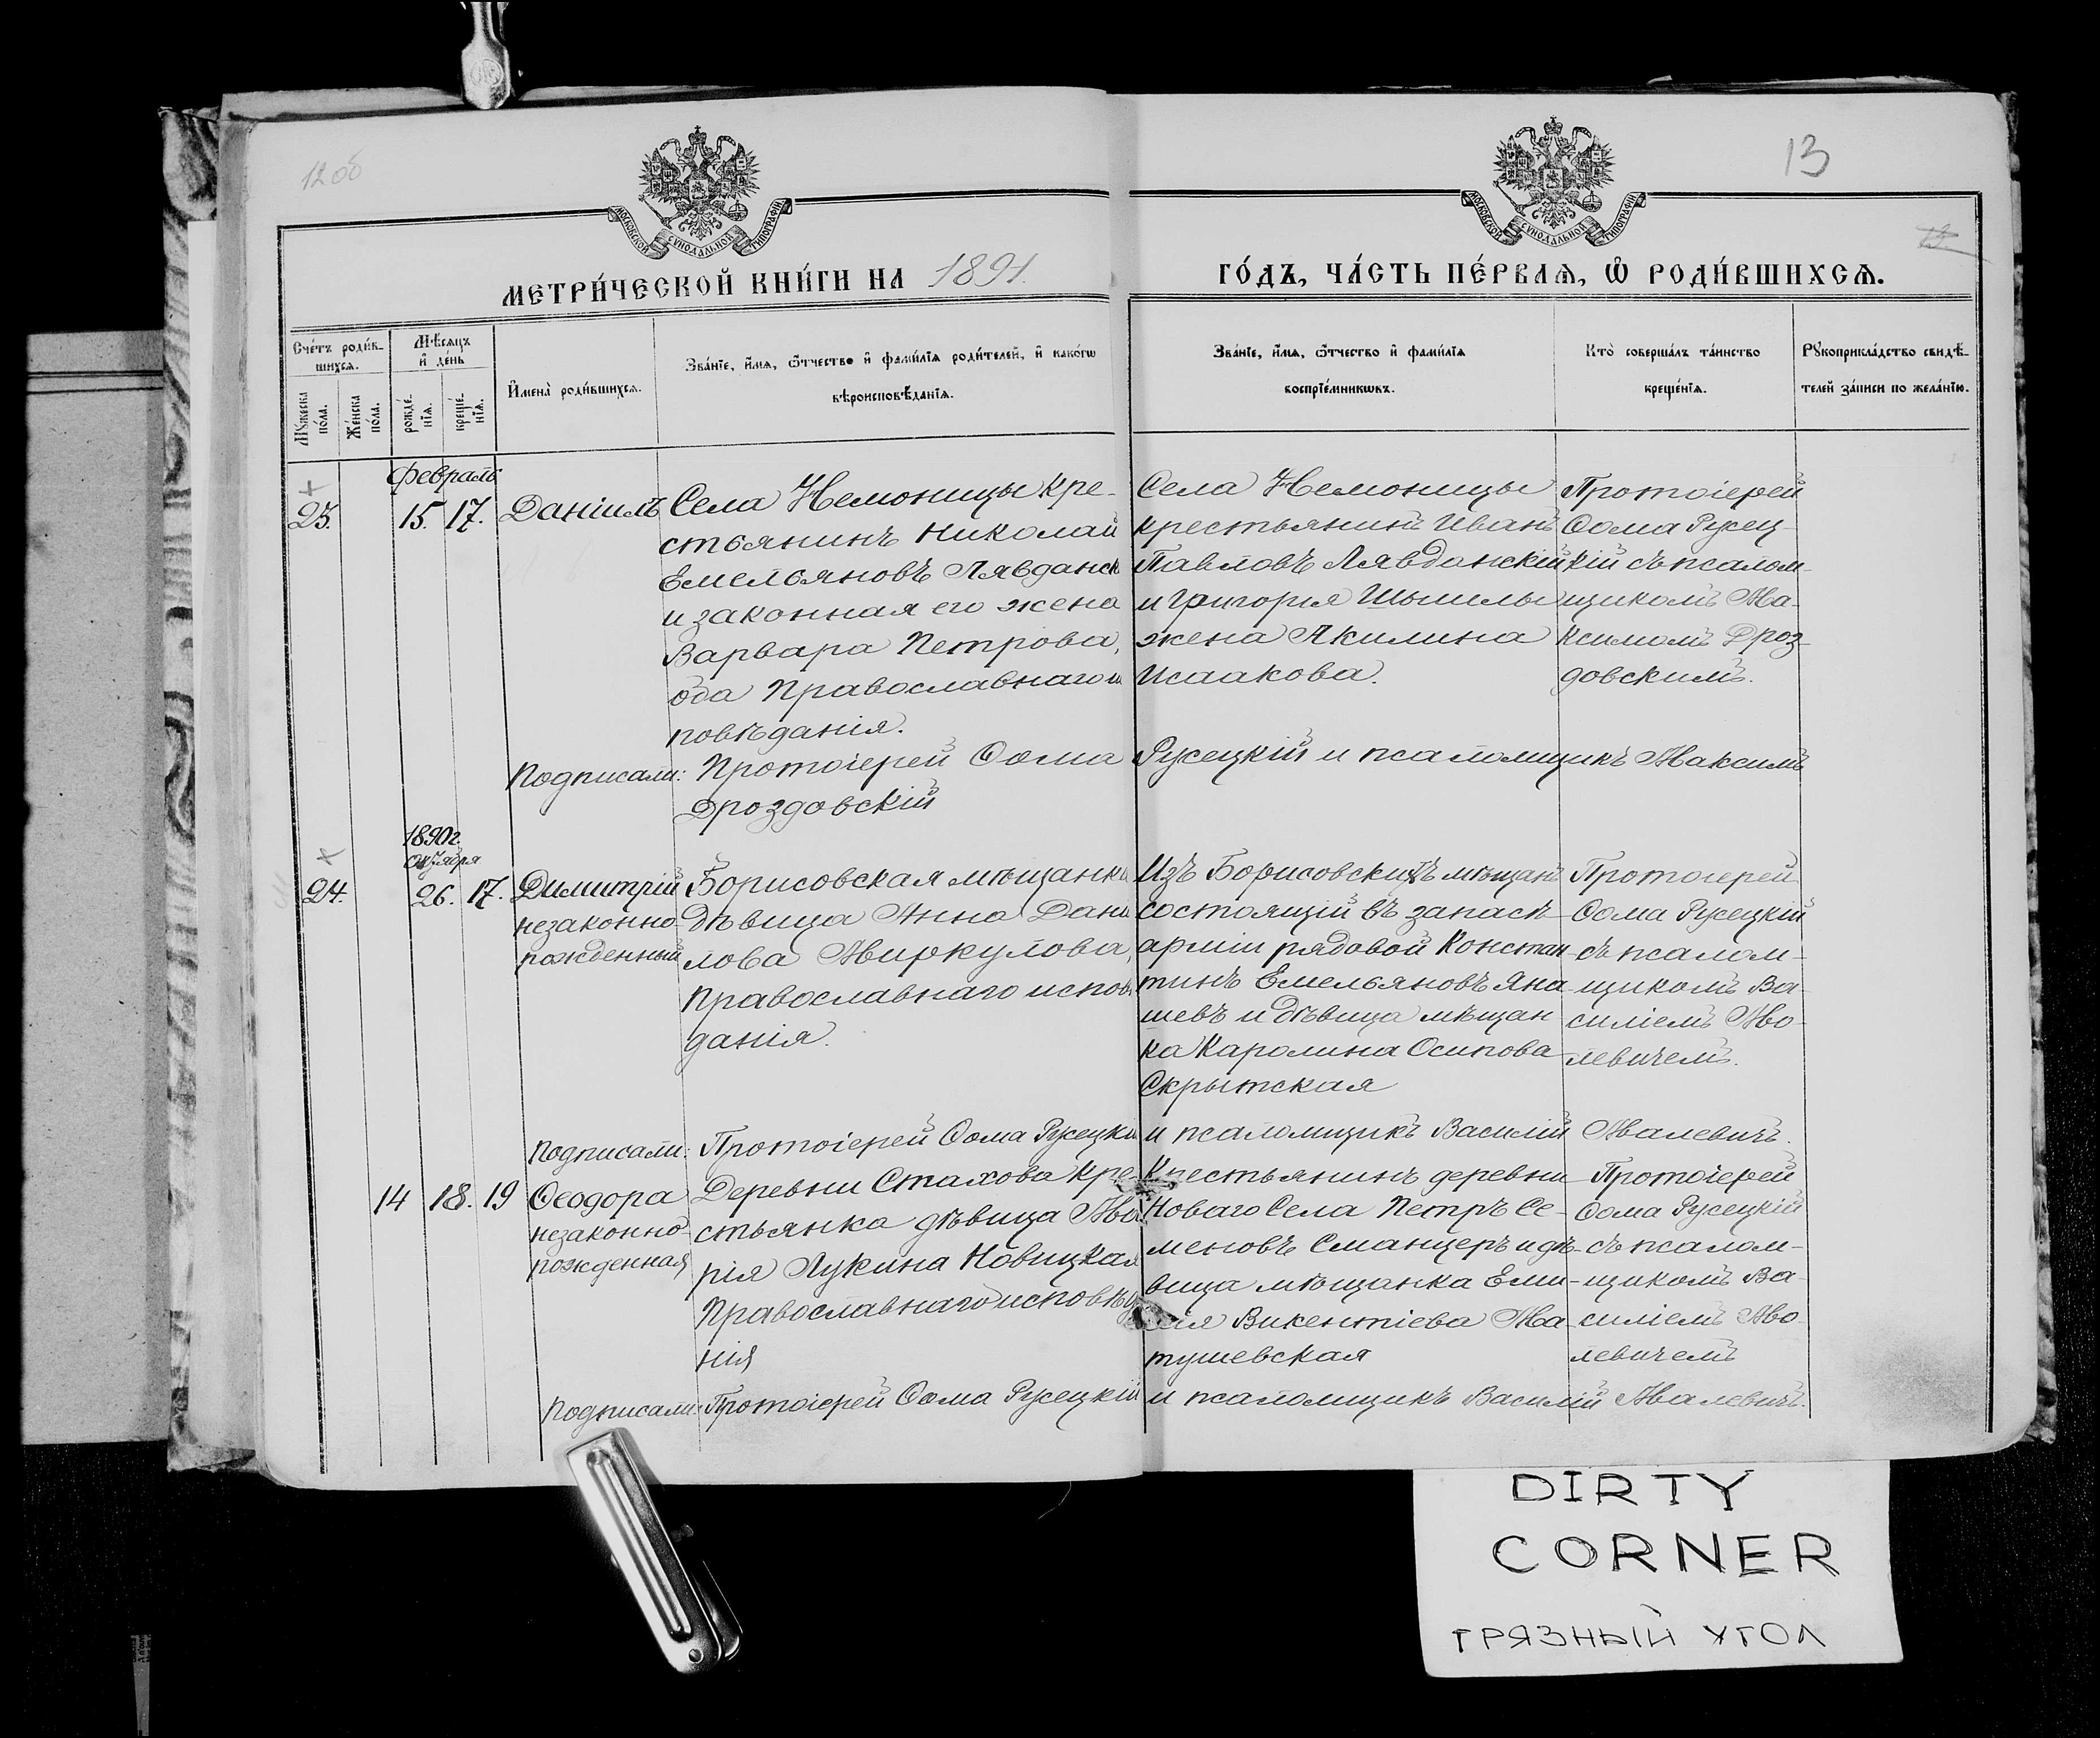 12 об
13
МОСКОВСКОЙ СѴНОДАЛЬНОЙ ТИПОГРАФІИ
МОСКОВСКОЙ СѴНОДАЛЬНОЙ ТИПОГРАФІИ
МЕТРИ́ЧЕСКОЙ КНИ́ГИ НА 1891.
ГО́ДЪ, ЧА́СТЬ ПЕ́РВАѦ, Ѡ҆ РОДИ́ВШИХСѦ.
Сче́тъ роди́в-
шихсѧ.
Мꙋ́жеска по́ла.
Же́нска по́ла.
Мѣ́сѧцъ
и҆ де́нь
рожде́нїѧ.
креще́нїѧ.
И҆мена̀ роди́вшихсѧ.
Зва́нїе, и҆́мѧ, ѻ҆́тчество и҆ фами́лїѧ роди́телей, и҆ како́гѡ
вѣроисповѣ́данїѧ.
Зва́нїе, и҆́мѧ, ѻ҆́тчество и҆ фами́лїѧ
воспрїе́мникѡвъ.
Кто̀ соверша́лъ та́инство
креще́нїѧ.
Рꙋкоприкла́дство свидѣ́-
телей за́писи по жела́нїю.
Февраль
23. 15. 17. Даніилъ
Села Немоницы кре-
стьянинъ Николай
Емельяновъ Лявданск
и законная его жена
Варвара Петрова,
оба Православнаго и
повѣданія.
Села Немоницы
крестьянинъ Иванъ
Павловъ Лявданскій
и Григорія Шымелы
жена Акилина
Исаакова.
Протоіерей
Ѳома Русец-
кій съ псалом-
щикомъ Ма-
ксимомъ Дроз-
довскимъ.
Подписали: Протоіерей Ѳома Русецкій и псаломщикъ Максимъ
Дроздовскій
1890 г.
Октября
24. 26. 17. Димитрій
незаконно-
рожденный
Борисовская мѣщанка
дѣвица Анна Дани
лова Чиркулова,
Православнаго исповѣ
данія.
Изъ Борисовскихъ мѣщанъ
состоящій въ запасѣ
арміи рядовой Констан-
тинъ Емельяновъ Яна-
шевъ и дѣвица мѣщан
ка Каролина Осипова
Скрытская
Протоіерей
Ѳома Русецкій
съ псалом-
щикомъ Ва-
силіемъ
левичемъ.
Подписали: Протоіерей Ѳома Русецкій и псаломщикъ Василій
14 18. 19 Ѳеодора
незаконно-
рожденная
Деревни Стахова кре-
стьянка дѣвица Ма
рія Лукина Новицкая
Православнаго исповѣда
нія
Крестьянинъ деревни
Новаго Села Петръ Се-
меновъ Сманцеръ и дѣ-
вица мѣщанка Еми-
лія Викентіева Ма-
тушевская
Протоіерей
Ѳома Русецкій
съ псалом-
щикомъ Ва-
силіемъ
левичемъ
Подписали: Протоіерей Ѳома Русецкій и псаломщикъ Василій
DIRTY
CORNER
ГРЯЗНЫЙ УГОЛ